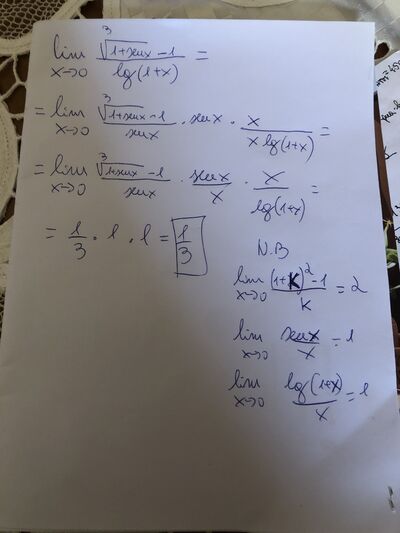 lim x→0 ∛(1+senx) -1 / lg(1+x) =
= lim x→0 ∛(1+senx) -1 / senx · senx · x / x lg(1+x) =
= lim x→0 ∛(1+senx) -1 / senx · senx / x · x / lg(1+x) =
= 1/3 · 1 · 1 = 1/3
N.B
lim x→0 (1+K)² -1 / K = 2
lim x→0 senx / x = 1
lim x→0 lg(1+x) / x = 1